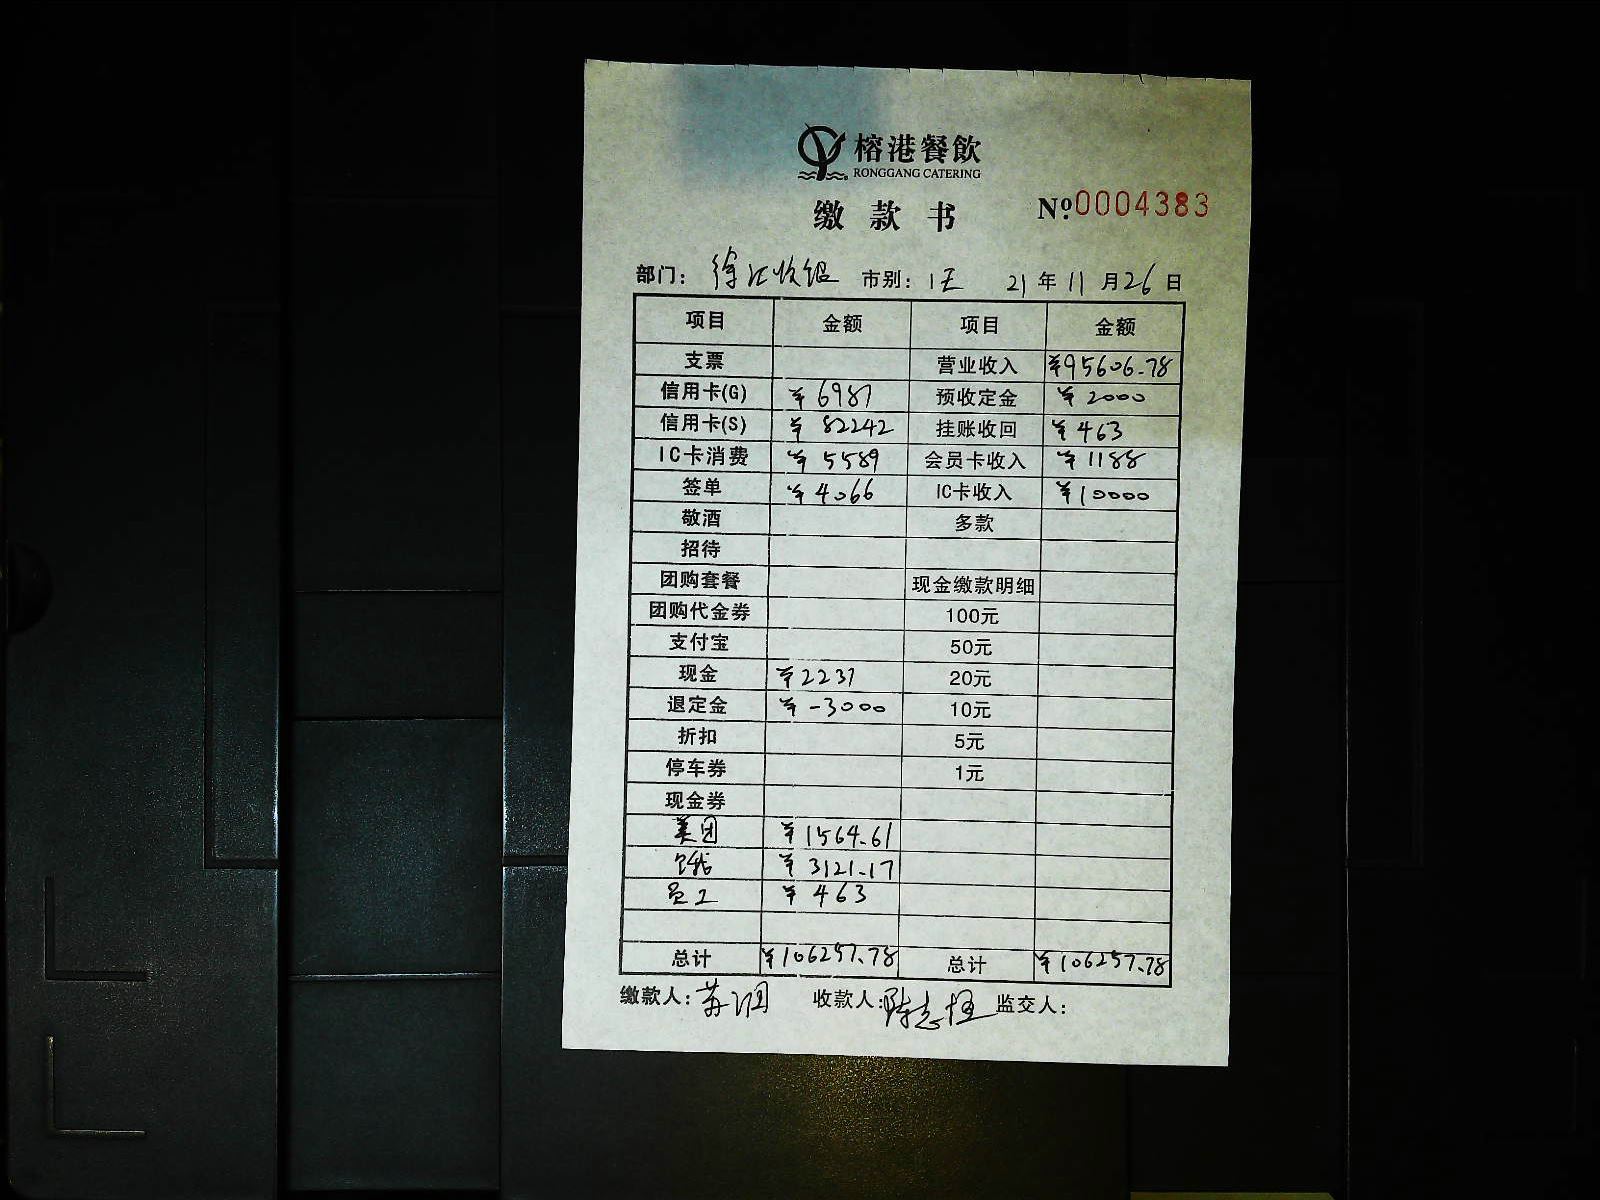 榕港餐飲
RONGGANG CATERING
缴款书 №0004383
部门: 徐汇收银 市别: 21年11月26日
项目 金额 项目 金额
支票 营业收入 ¥95606.78
信用卡(G) ¥6987 预收定金 ¥2000
信用卡(S) ¥82242 挂账收回 ¥463
IC卡消费 ¥5589 会员卡收入 ¥1188
签单 ¥4066 IC卡收入 ¥10000
敬酒 多款
招待
团购套餐 现金缴款明细
团购代金券 100元
支付宝 50元
现金 ¥2237 20元
退定金 ¥-3000 10元
折扣 5元
停车券 1元
现金券
美团 ¥1564.61
饿 ¥3121.17
员工 ¥463
总计 ¥106257.78 总计 ¥106257.78
缴款人: 收款人: 监交人: